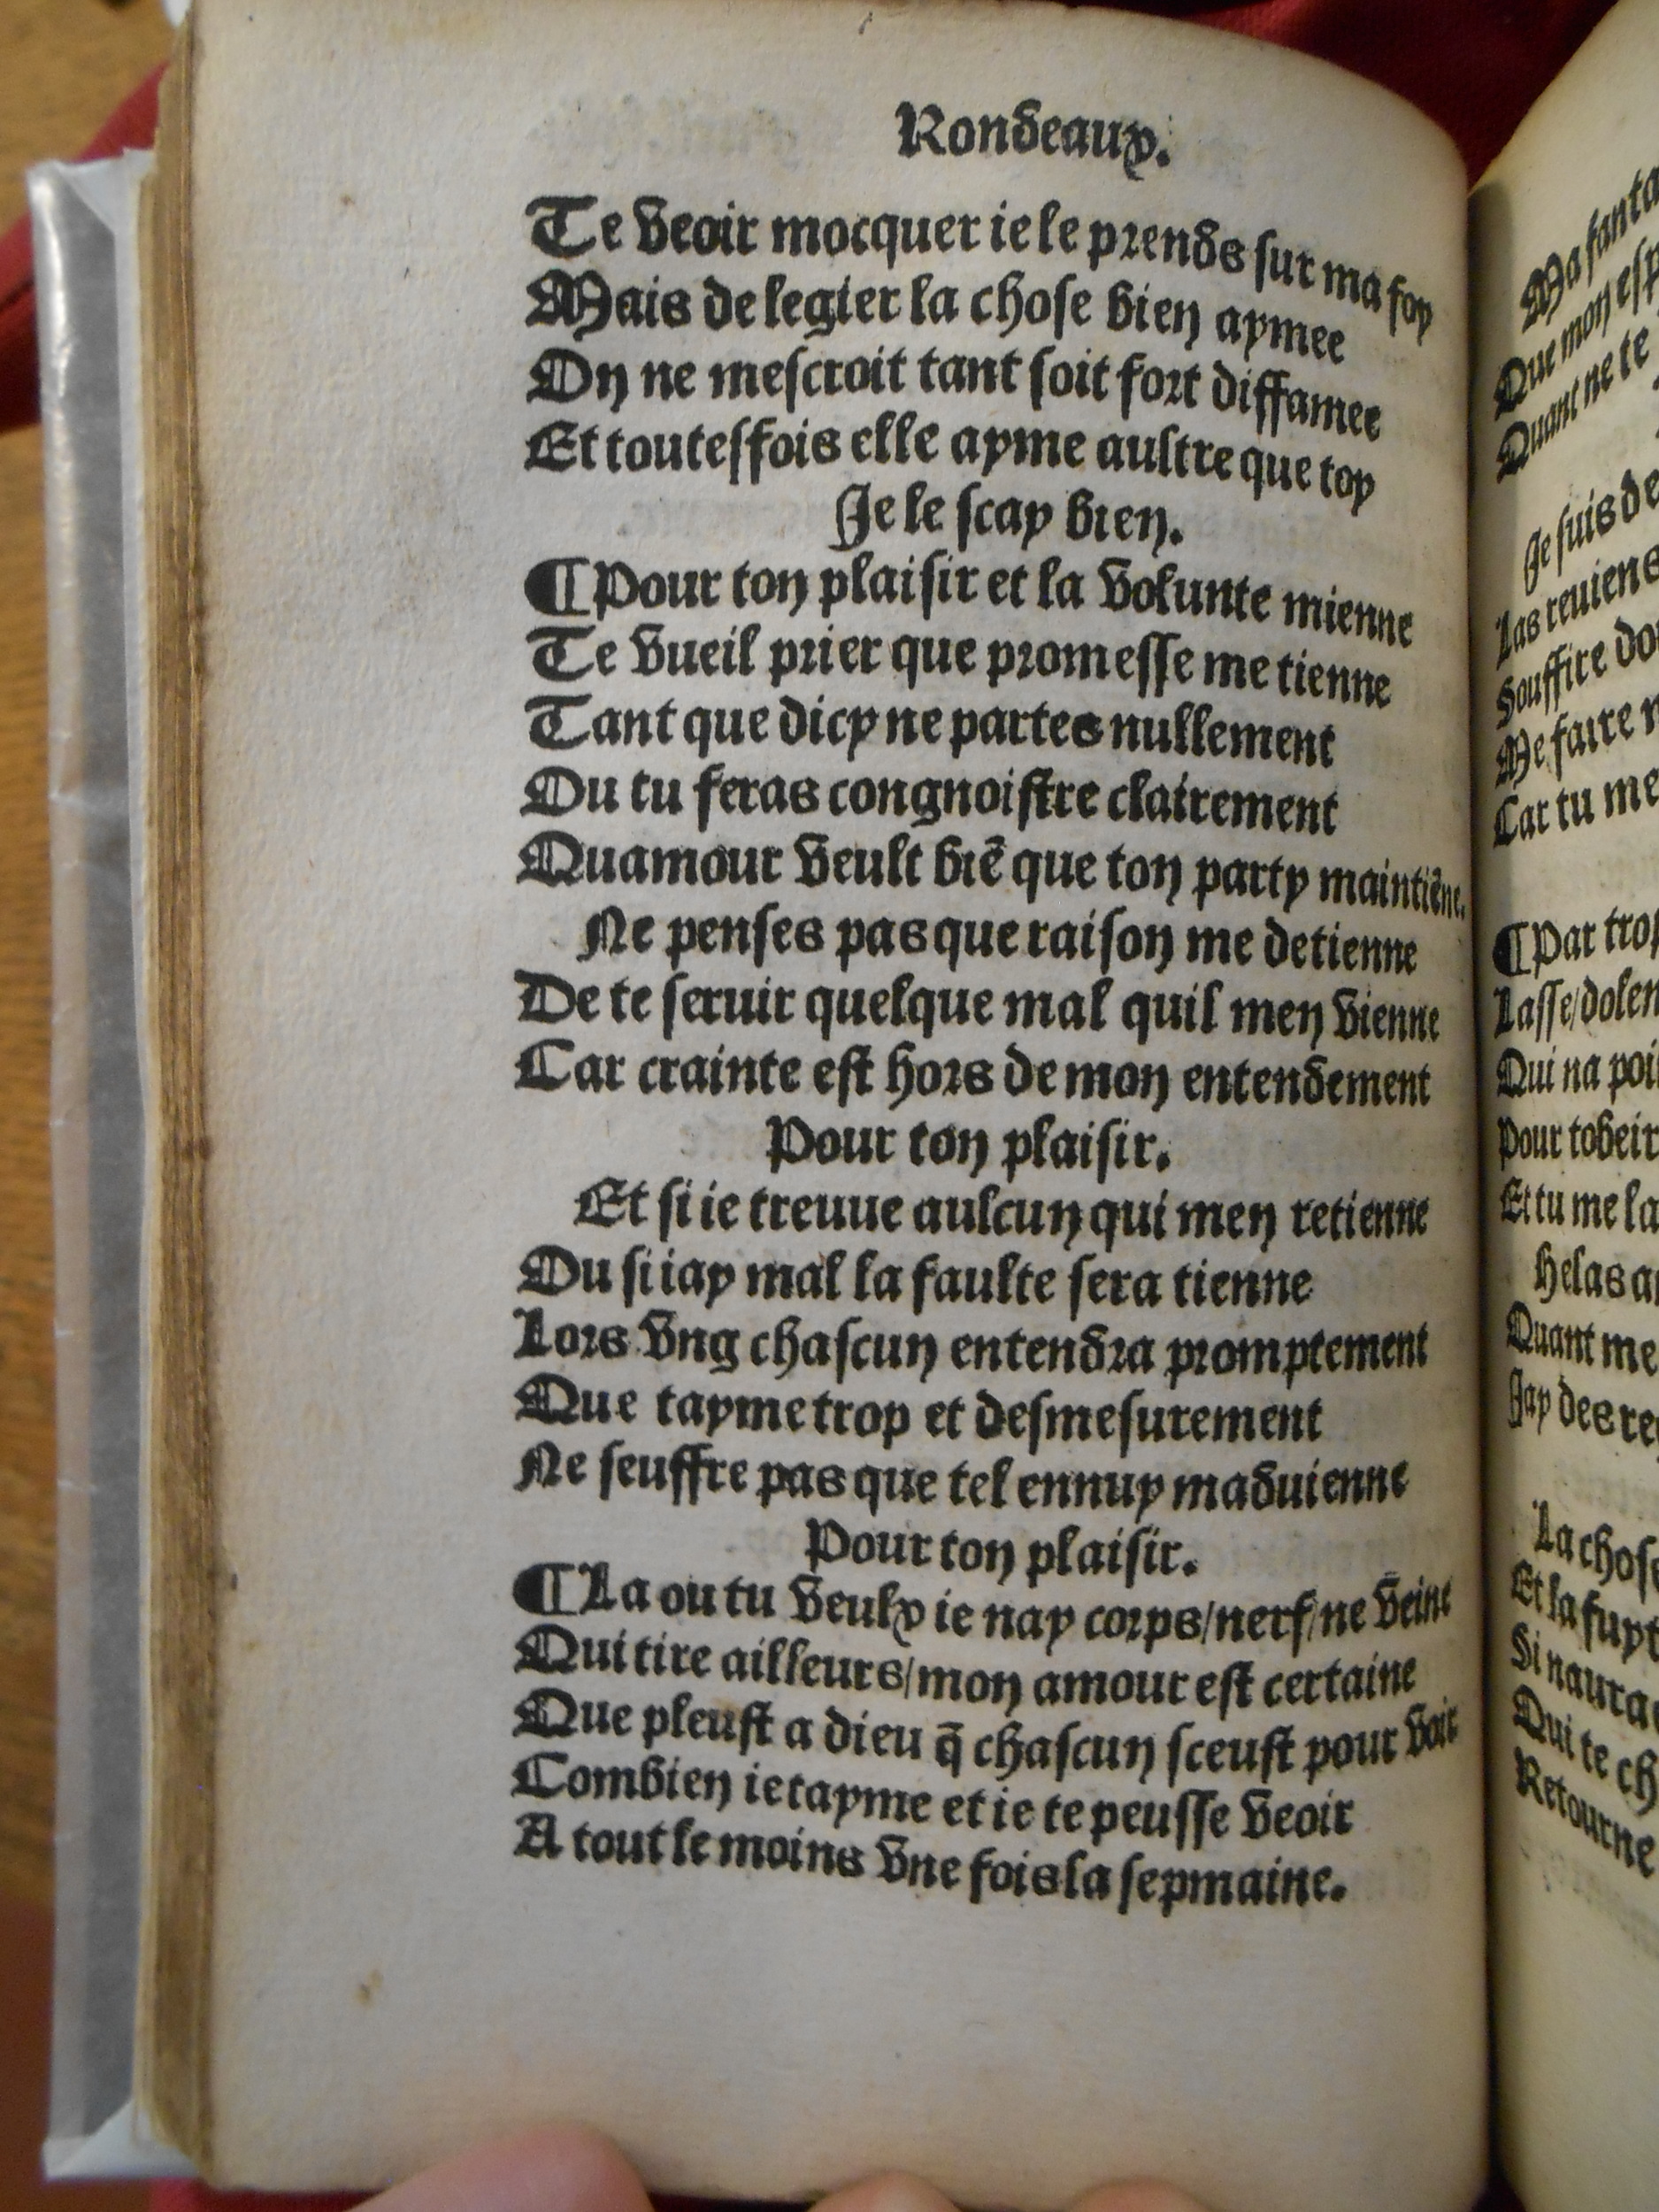 Rondeaux.
Te veoir mocquer ie le prends sur ma foy
Mais de legier la chose bien aymee
On ne mescroit tant soit fort diffamee
Et toutesfois elle ayme aultre que toy
Je le scay bien.
¶Pour ton plaisir et la volunte mienne
Te vueil prier que promesse me tienne
Tant que dicy ne partes nullement
Ou tu feras congnoistre clairement
Quamour veult biē que ton party maintiēne.
Ne penses pas que raison me detienne
De te seruir quelque mal quil men vienne
Car crainte est hors de mon entendement
Pour ton plaisir.
Et si ie treuue aulcun qui men retienne
Ou si iay mal la faulte sera tienne
Lors vng chascun entendra promptement
Que tayme trop et desmesurement
Ne seuffre pas que tel ennuy maduienne
Pour ton plaisir.
¶La ou tu veulx ie nay corps/nerf/ne veine
Qui tire ailleurs/mon amour est certaine
Que pleust a dieu q̄ chascun sceust pour voir
Combien ie tayme et ie te peusse veoir
A tout le moins vne fois la sepmaine.
Ma fanta
Que mon esp
Quant ne te
Je suis de
Las reuiens
Souffire
Me faire
Car tu me
¶Par trop
Lasse/dolen
Qui na poi
Pour tobeir
Et tu me la
Helas a
Quant me
Jay des re
La chose
Et la fuyt
Si naura
Qui te ch
Retourne